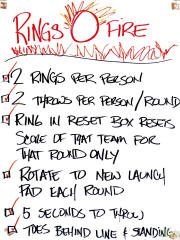 RINGS O FIRE
2 RINGS PER PERSON
2 THROWS PER PERSON/ROUND
RING IN RESET BOX RESETS
SCORE OF THAT TEAM FOR
THAT ROUND ONLY
ROTATE TO NEW LAUNCH
PAD EACH ROUND
5 SECONDS TO THROW
TOES BEHIND LINE & STANDING